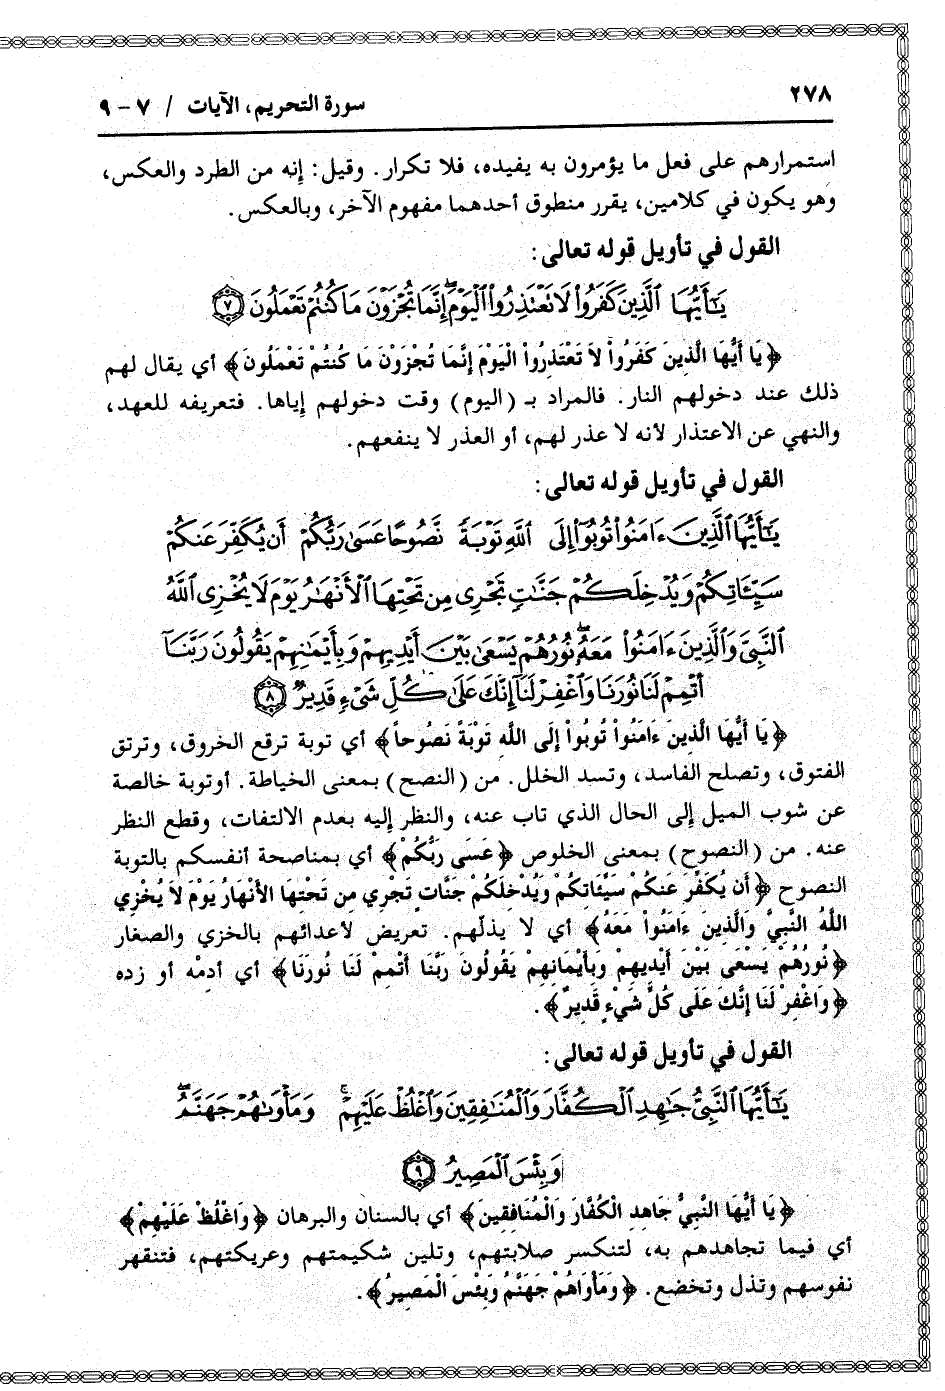 ٢٧٨
سورة التحريم، الآيات / ٧ - ٩
استمرارهم على فعل ما يؤمرون به يفيده، فلا تكرار. وقيل: إنه من الطرد والعكس،
وهو يكون في كلامين، يقرر منطوق أحدهما مفهوم الآخر، وبالعكس.
القول في تأويل قوله تعالى:
يَٰٓأَيُّهَا ٱلَّذِينَ كَفَرُواْ لَا تَعْتَذِرُواْ ٱلْيَوْمَ ۖ إِنَّمَا تُجْزَوْنَ مَا كُنتُمْ تَعْمَلُونَ ٧
﴿يَا أَيُّهَا الَّذِينَ كَفَرُواْ لاَ تَعْتَذرُواْ الْيَوْمَ إِنَّمَا تُجْزَوْنَ مَا كُنتُمْ تَعْمَلُونَ﴾ أي يقال لهم
ذلك عند دخولهم النار. فالمراد بـ (اليوم) وقت دخولهم إياها. فتعريفه للعهد،
والنهي عن الاعتذار لأنه لا عذر لهم، أو العذر لا ينفعهم.
القول في تأويل قوله تعالى:
يَٰٓأَيُّهَا ٱلَّذِينَ ءَامَنُواْ تُوبُوٓاْ إِلَى ٱللَّهِ تَوْبَةً نَّصُوحًا عَسَىٰ رَبُّكُمْ أَن يُكَفِّرَ عَنكُمْ
سَيِّـَٔاتِكُمْ وَيُدْخِلَكُمْ جَنَّٰتٍ تَجْرِى مِن تَحْتِهَا ٱلْأَنْهَٰرُ يَوْمَ لَا يُخْزِى ٱللَّهُ
ٱلنَّبِىَّ وَٱلَّذِينَ ءَامَنُواْ مَعَهُۥ ۖ نُورُهُمْ يَسْعَىٰ بَيْنَ أَيْدِيهِمْ وَبِأَيْمَٰنِهِمْ يَقُولُونَ رَبَّنَآ
أَتْمِمْ لَنَا نُورَنَا وَٱغْفِرْ لَنَآ ۖ إِنَّكَ عَلَىٰ كُلِّ شَىْءٍ قَدِيرٌ ٨
﴿يَا أَيُّهَا الَّذِينَ ءَامَنُواْ تُوبُواْ إِلَى اللَّهِ تَوْبَةً نَصُوحاً﴾ أي توبة ترقع الخروق، وترتق
الفتوق، وتصلح الفاسد، وتسد الخلل. من (النصح) بمعنى الخياطة. أوتوبة خالصة
عن شوب الميل إلى الحال الذي تاب عنه، والنظر إليه بعدم الالتفات، وقطع النظر
عنه. من (النصوح) بمعنى الخلوص ﴿عَسَى رَبُّكُمْ﴾ أي بمناصحة أنفسكم بالتوبة
النصوح ﴿أَن يُكَفِّرَ عَنكُمْ سَيِّئَاتِكُمْ وَيُدْخِلَكُمْ جَنَّاتٍ تَجْرِي مِن تَحْتِهَا الأَنْهَارُ يَوْمَ لاَ يُخْزِي
اللَّهُ النَّبِيَّ وَالَّذِينَ ءَامَنُواْ مَعَهُ﴾ أي لا يذلّهم. تعريض لأعدائهم بالخزي والصغار
﴿نُورُهُمْ يَسْعَى بَيْنَ أَيْدِيهِمْ وَبِأَيْمَانِهِمْ يَقُولُونَ رَبَّنَا أَتْمِمْ لَنَا نُورَنَا﴾ أي أدمْه أو زده
﴿وَاغْفِرْ لَنَا إِنَّكَ عَلَى كُلِّ شَيْءٍ قَدِيرٌ﴾.
القول في تأويل قوله تعالى:
يَٰٓأَيُّهَا ٱلنَّبِىُّ جَٰهِدِ ٱلْكُفَّارَ وَٱلْمُنَٰفِقِينَ وَٱغْلُظْ عَلَيْهِمْ ۚ وَمَأْوَىٰهُمْ جَهَنَّمُ ۖ
وَبِئْسَ ٱلْمَصِيرُ ٩
﴿يَا أَيُّهَا النَّبِيُّ جَاهِدِ الْكُفَّارَ وَالْمُنَافِقِينَ﴾ أي بالسنان والبرهان ﴿وَاغْلُظْ عَلَيْهِمْ﴾
أي فيما تجاهدهم به، لتنكسر صلابتهم، وتلين شكيمتهم وعريكتهم، فتنقهر
نفوسهم وتذل وتخضع. ﴿وَمَأْوَاهُمْ جَهَنَّمُ وَبِئْسَ الْمَصِيرُ﴾.